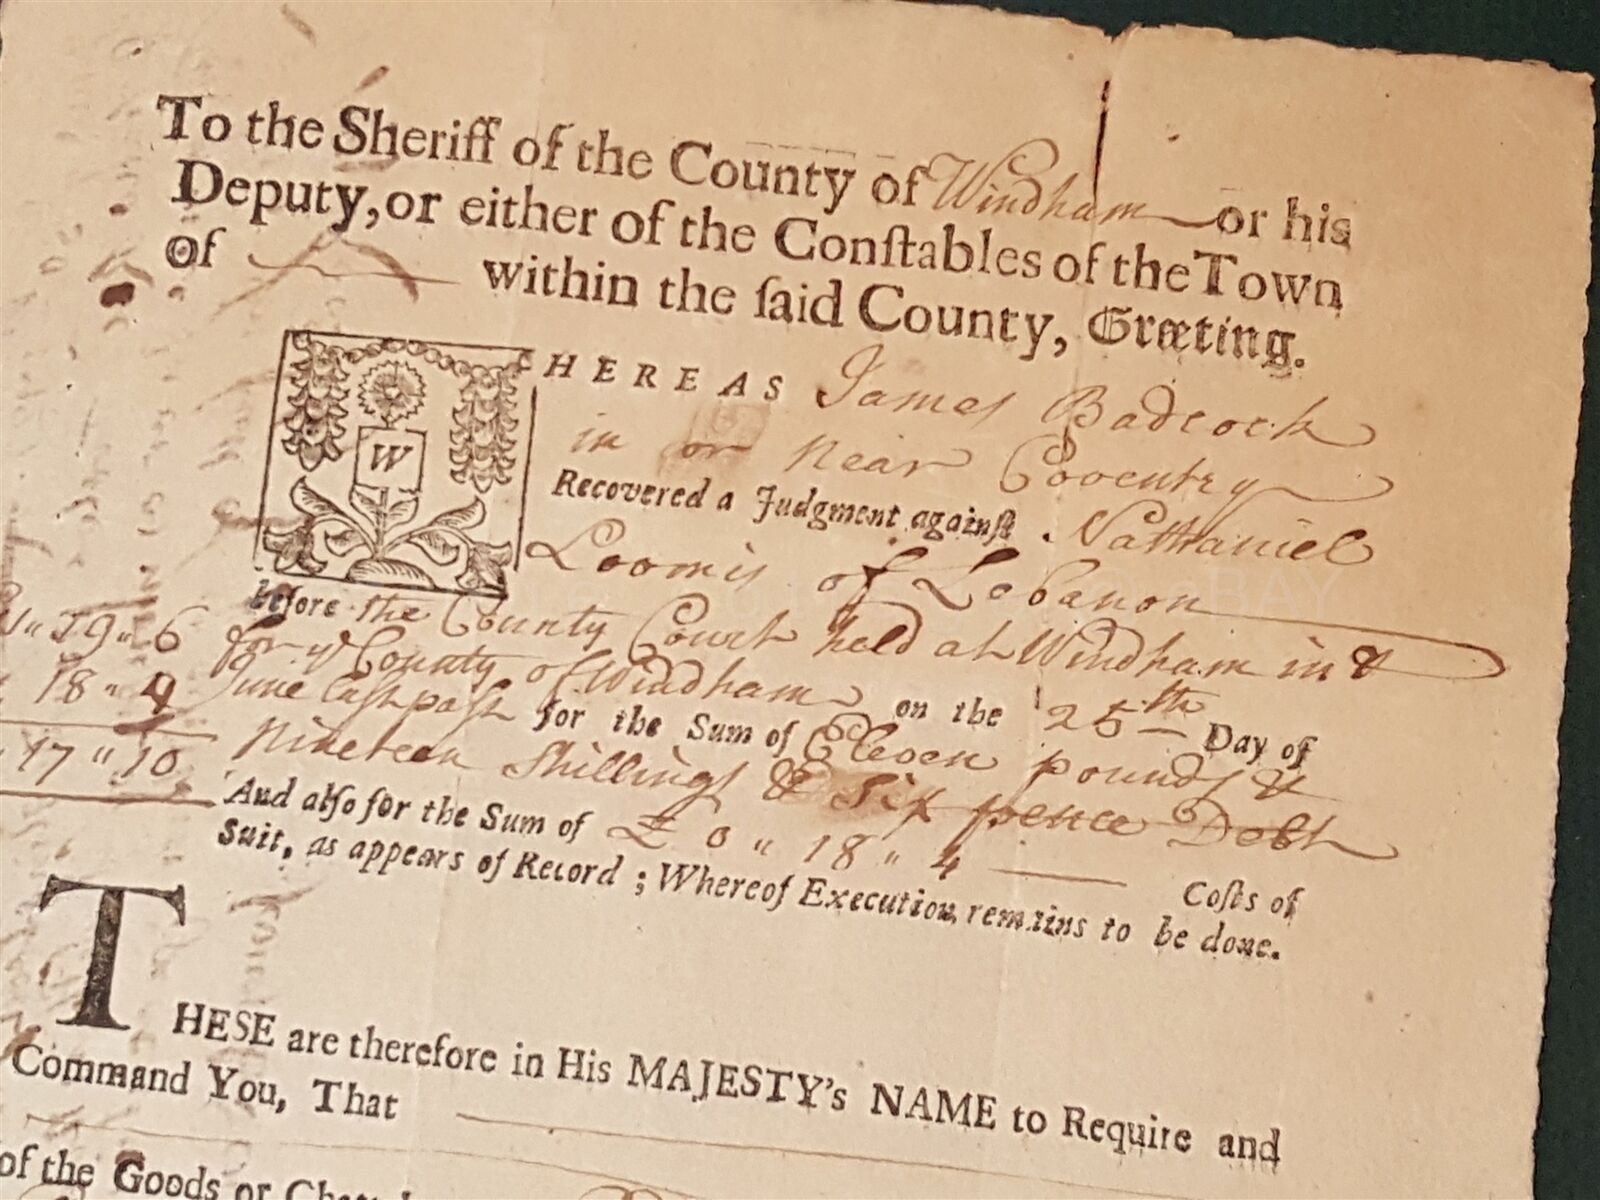 To the Sheriff of the County of Windham or his
Deputy, or either of the Conſtables of the Town
of within the ſaid County, Greeting.
WHEREAS James Badcock
in or near Coventry
Recovered a Judgment againſt Nathaniel
Loomis of Lebanon
before the County Court held at Windham in &
for yᵉ County of Windham on the 25th Day of
June laſt paſt for the Sum of Eleven pounds &
Nineteen Shillings & Six pence Debt
And alſo for the Sum of £ 0 " 18 " 4 Coſts of
Suit, as appears of Record ; Whereof Execution remains to be done.
" 19 " 6
18 " 4
" 17 " 10
THESE are therefore in His MAJESTY's NAME to Require and
Command You, That
of the Goods or